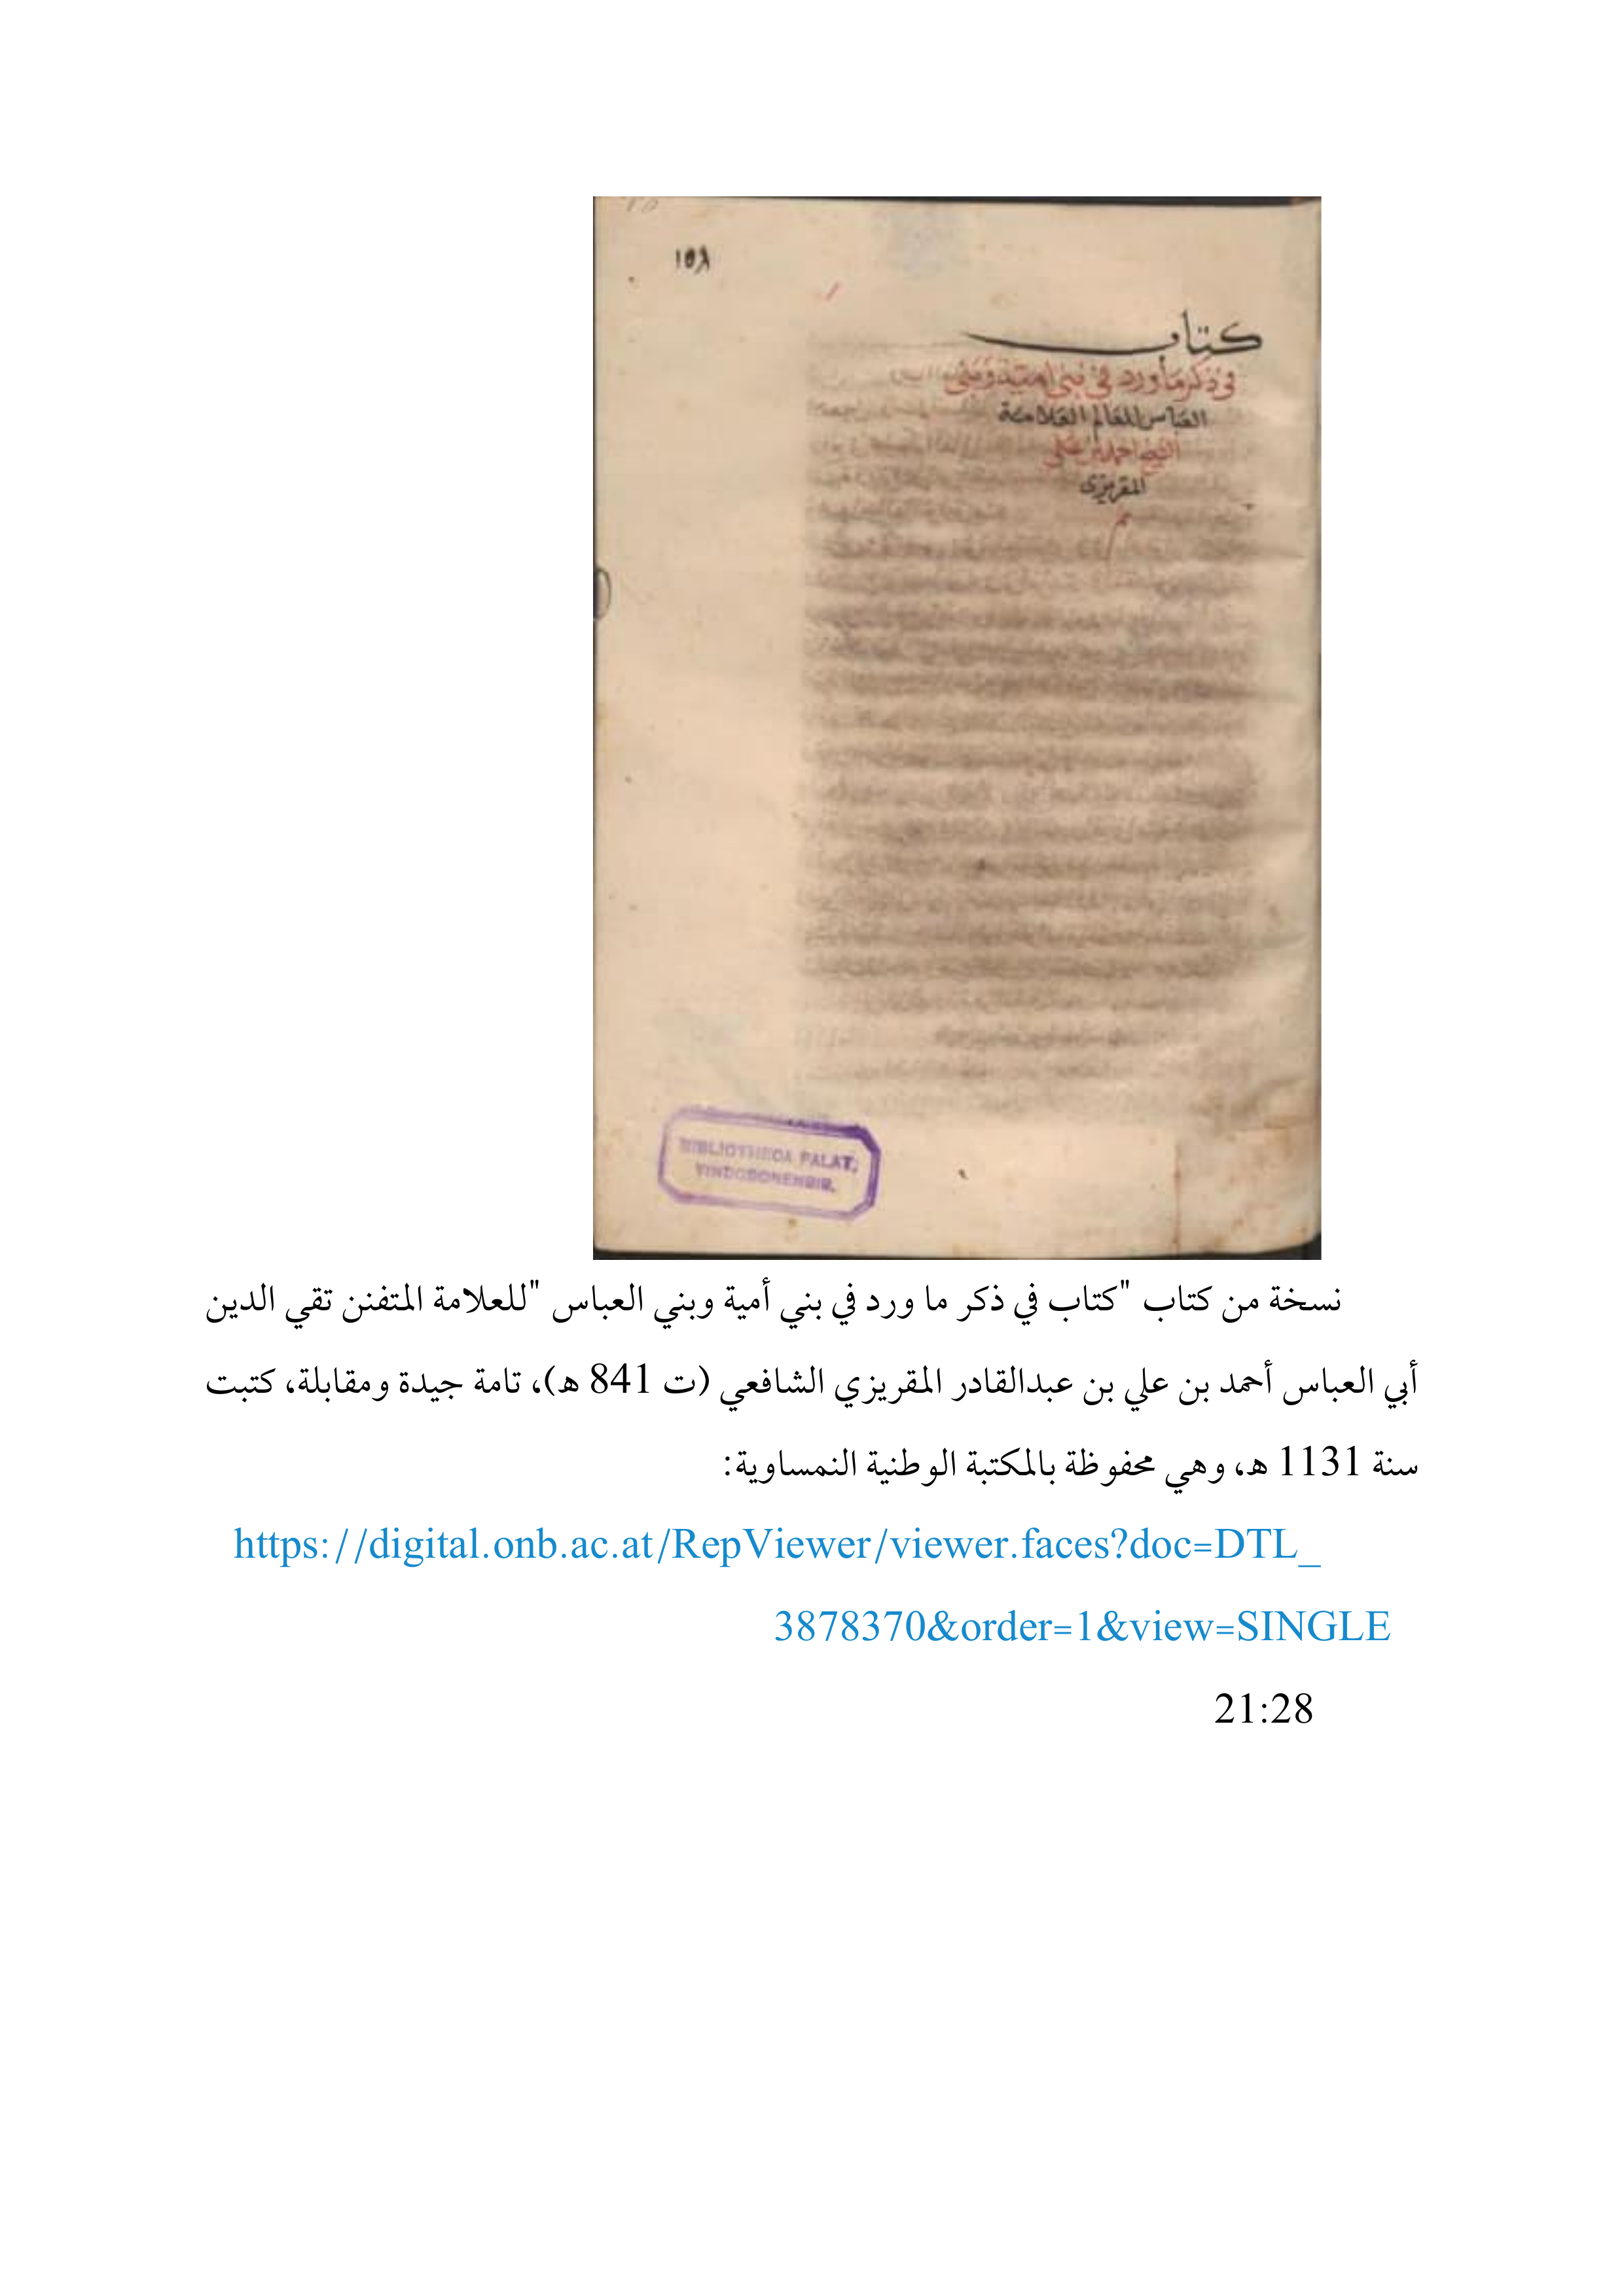 ١٥٨
كتاب
في ذكر ما ورد في بني امية وبني
العباس للعالم العلامة
الشيخ احمد بن علي
المقريزى
BIBLIOTHECA PALAT.
VINDOBONENSIS.
نسخة من كتاب "كتاب في ذكر ما ورد في بني أمية وبني العباس "للعلامة المتفنن تقي الدين
أبي العباس أحمد بن علي بن عبدالقادر المقريزي الشافعي (ت 841 ه)، تامة جيدة ومقابلة، كتبت
سنة 1131 ه، وهي محفوظة بالمكتبة الوطنية النمساوية:
https://digital.onb.ac.at/RepViewer/viewer.faces?doc=DTL_
3878370&order=1&view=SINGLE
21:28